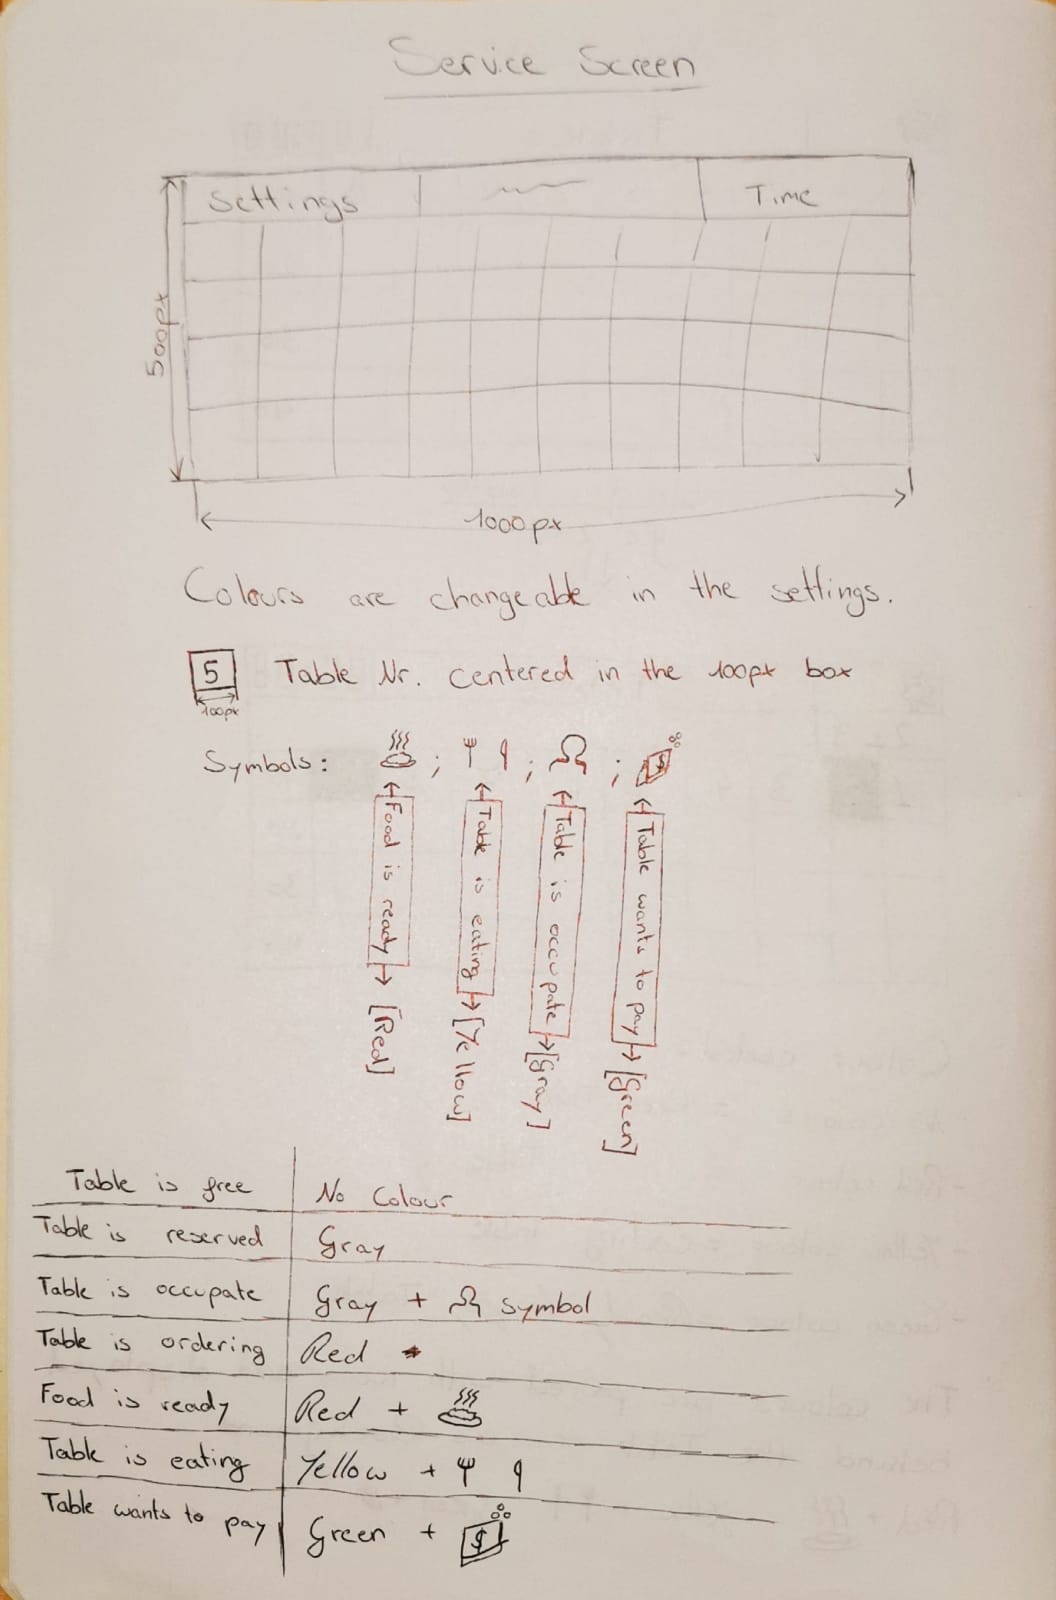 Service Screen
Settings
Time
500px
1000px
Colours are changeable in the settings.
5
Table Nr. centered in the 100px box
100px
Symbols: ; ; ;
Food is ready → [Red]
Table is eating → [Yellow]
Table is occupate → [Gray]
Table wants to pay → [Green]
Table is free No Colour
Table is reserved Gray
Table is occupate Gray + symbol
Table is ordering Red
Food is ready Red +
Table is eating Yellow +
Table wants to pay Green + $